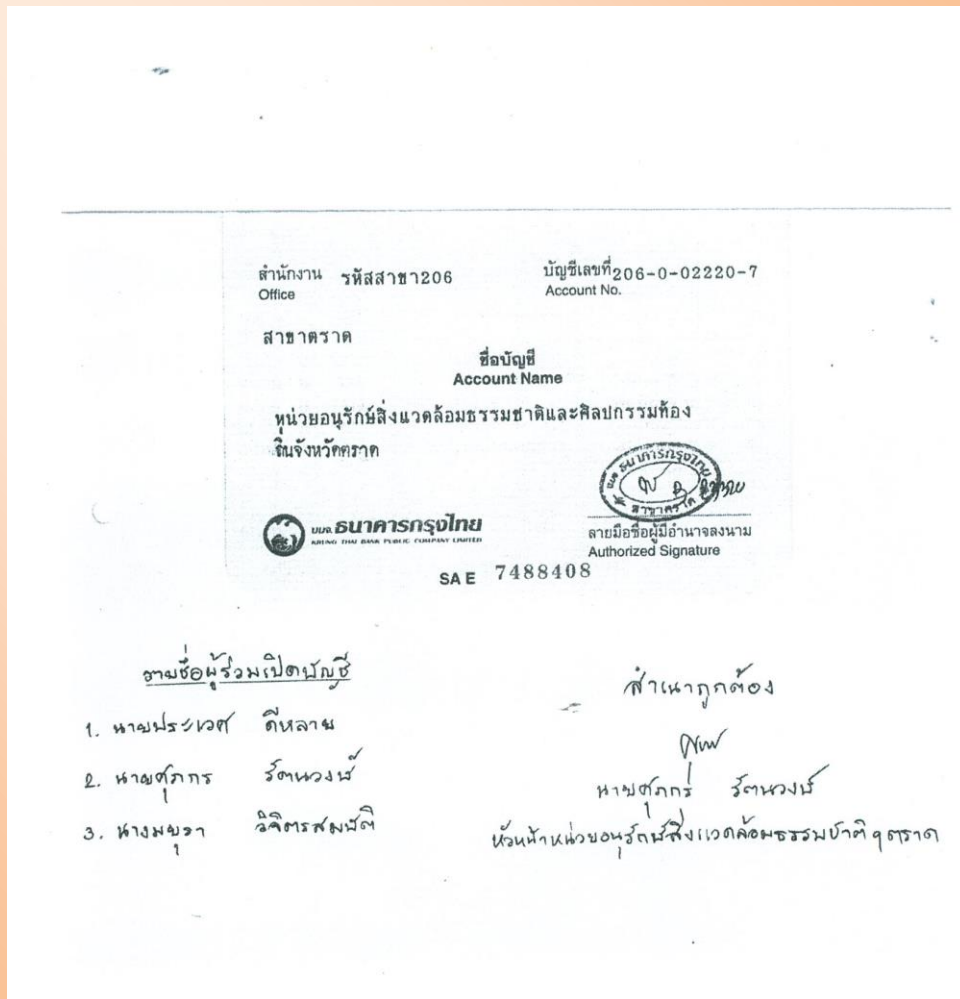 สำนักงาน รหัสสาขา206 บัญชีเลขที่206-0-02220-7
Office Account No.
สาขาตราด
ชื่อบัญชี
Account Name
หน่วยอนุรักษ์สิ่งแวดล้อมธรรมชาติและศิลปกรรมท้อง
ถิ่นจังหวัดตราด
ธนาคารกรุงไทย
สาขาตราด
บมจ. ธนาคารกรุงไทย
KRUNG THAI BANK PUBLIC COMPANY LIMITED
ลายมือชื่อผู้มีอำนาจลงนาม
Authorized Signature
SA E 7488408
รายชื่อผู้ร่วมเปิดบัญชี
1. นายประเวศ ดีหลาย
2. นายศุภกร รัตนวงษ์
3. นางมยุรา วิจิตรสมบัติ
สำเนาถูกต้อง
นายศุภกร รัตนวงษ์
หัวหน้าหน่วยอนุรักษ์สิ่งแวดล้อมธรรมชาติ ฯ ตราด